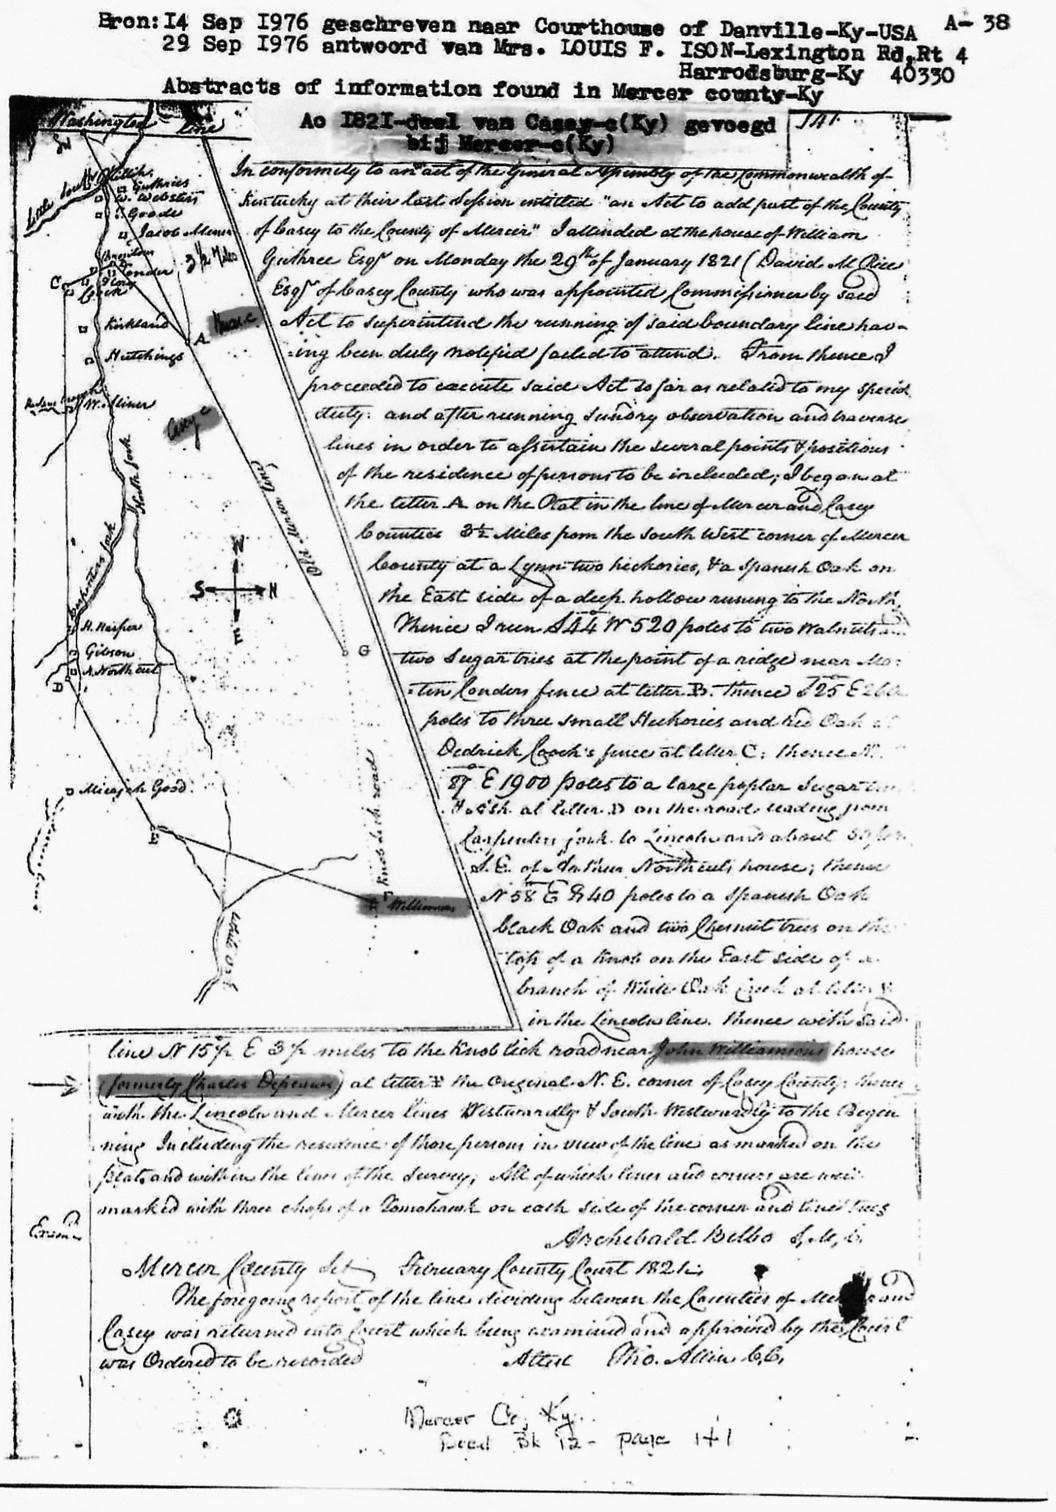 Bron:14 Sep 1976 geschreven naar Courthouse of Danville-Ky-USA A- 38
29 Sep 1976 antwoord van Mrs. LOUIS F. ISON-Lexington Rd,Rt 4
Harrodsburg-Ky 40330
Abstracts of information found in Mercer county-Ky
Ao 1821-deel van Casey-c(Ky) gevoegd
bij Mercer-c(Ky)
141
Washington line
SW
Little South
Guthries
W. Websters
Goode
Jacob Miner
3½ Miles
Conder
C
Kirkland
A
Merc.c
Hutchings
W. Miner
Casey c
Old Mercer line
North fork
Carpenters fork
W
S N
E
G
H. Harper
Gibson
A. Northcut
D
Micajah Good
E
Knob lick road
F
Williamson
White oak
In conformity to an act of the General Assembly of the Commonwealth of
Kentucky at their last Session entitled "an Act to add part of the County
of Casey to the County of Mercer" I attended at the house of William
Guthree Esqr on Monday the 29th of January 1821 (David McRice
Esqr of Casey County who was appointed Commissioner by said
Act to superintend the running of said boundary line hav-
ing been duly notified failed to attend. From thence I
proceeded to execute said Act so far as related to my special
duty: and after running sundry observation and traverse
lines in order to assertain the several points & positions
of the residence of persons to be included; I began at
the letter A on the Plat in the line of Mercer and Casey
Counties 3½ Miles from the South West corner of Mercer
County at a Lynn two hickories, & a Spanish Oak on
the East side of a deep hollow runing to the North
Thence I run S 44 W 520 poles to two Walnuts
two Sugar tries at the point of a ridge near
Conders fence at letter B. thence S 25 E
poles to three small Hickories and red Oak at
Dedrick Cooch's fence at letter C: thence N.
87 E 1900 poles to a large poplar Sugar
at letter D on the road leading from
Carpenters fork to Lincoln and about
S.E. of Northcuts house; thence
N 58 E 840 poles to a Spanish Oak
black Oak and two Chesnut trees on the
top of a Knob on the East side of a
branch of White Oak Creek at letter E
in the Lincoln line. thence with said
line N 15 E 3½ miles to the Knob lick road near John Williamsons house
(formerly Charles Depeauw) at letter F the Original N. E. corner of Casey County: thence
with the Lincoln and Mercer lines Westwardly & South Westwardly to the Begin
ning Including the residence of those persons in view of the line as marked on the
plat and within the lines of the Survey; All of which lines and corners are well
marked with three chops of a Tomohawk on each side of the corner and lines trees
Archebald Bilbo S, M, C.
Exam.d
Mercer County Set February County Court 1821
The foregoing report of the line dividing between the Counties of Mercer and
Casey was returned into Court which being examined and approved by the Court
was Ordered to be recorded Attest Tho. Allin C, C,
Mercer Co, Ky.
Deed Bk 12 - page 141